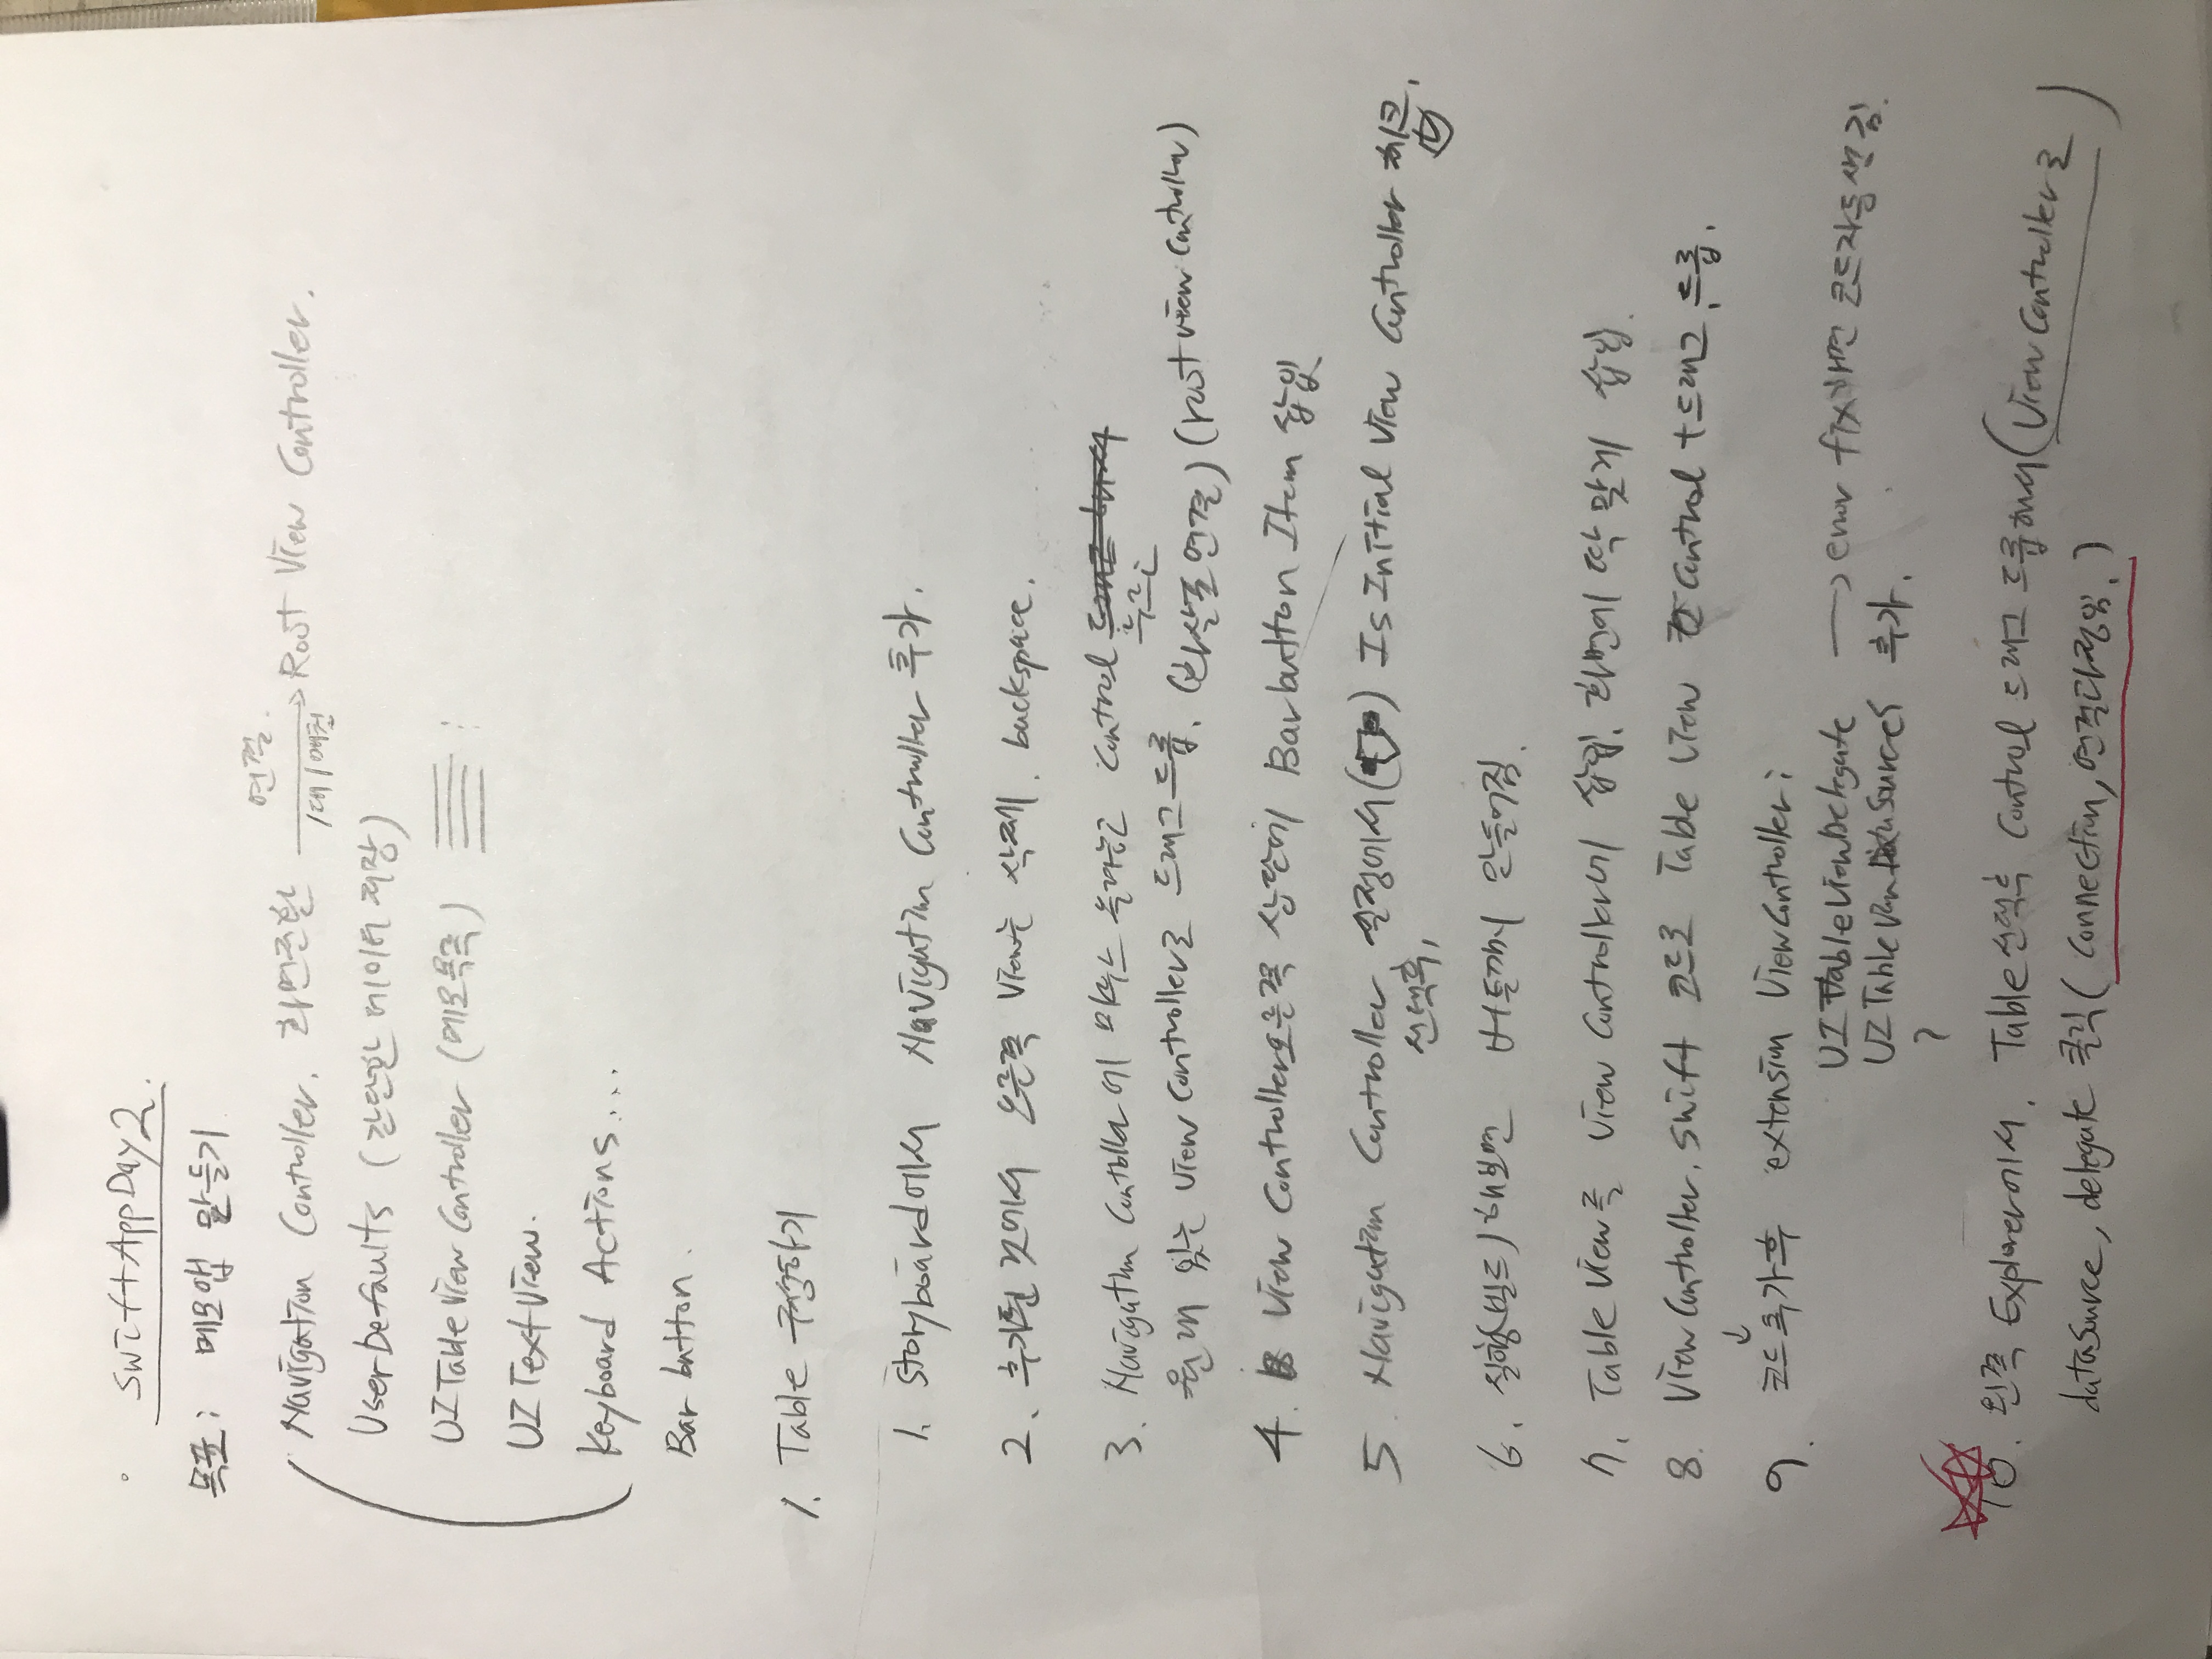 SwiftAppDay2.
목표: 메모앱 만들기
Navigation Controller. 화면전환 연결. 1대1매칭 → Root View Controller.
UserDefaults (간단한 데이터 저장)
UITableView Controller (메모목록)
UITextView.
Keyboard Actions...
Bar button.
1. Table 구성하기
1. Storyboard에서 Navigation Controller 추가.
2. 추가된 것에서 오른쪽 View는 삭제. backspace.
3. Navigation Controller에 마우스 올려놓고 control 누르고
원래 있는 View Controller로 드래그드롭. (화살표 연결) (root view controller)
4. View Controller 오른쪽 상단에 Bar button Item 삽입
5. Navigation Controller 선택후, 설정에서 ( ) Is Initial View Controller 체크.
6. 실행(빌드)해보면 버튼까지 만들어짐.
7. Table View를 View Controller에 삽입. 화면에 딱 맞게 삽입.
8. ViewController.swift 코드로 Table View control + 드래그, 드롭.
↓
9. 코드추가후 extension ViewController:
UITableViewDelegate → error fix하면 코드자동생김.
UITableViewDataSources 추가.
}
10. 왼쪽 Explorer에서. Table선택후 Control 드래그 드롭해서 (View Controller로)
dataSource, delegate 클릭 (Connection, 연결과정임.)